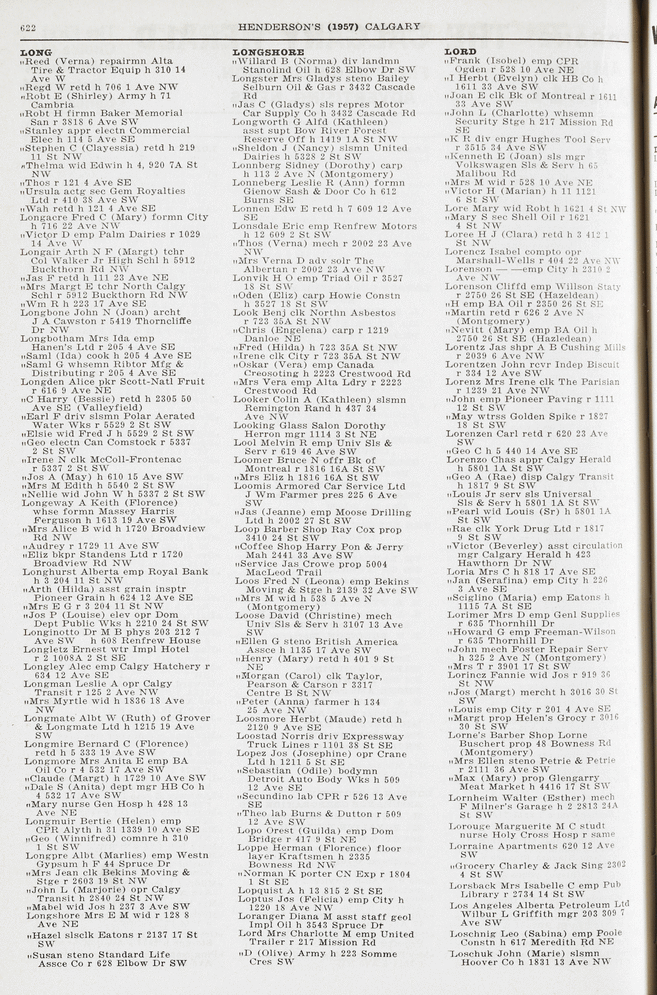 622
HENDERSON'S (1957) CALGARY
LONG
„Reed (Verna) repairmn Alta
Tire & Tractor Equip h 310 14
Ave W
„Regd W retd h 706 1 Ave NW
„Robt E (Shirley) Army h 71
Cambria
„Robt H firmn Baker Memorial
San r 3818 6 Ave SW
„Stanley appr electn Commercial
Elec h 114 5 Ave SE
„Stephen C (Clayessia) retd h 219
11 St NW
„Thelma wid Edwin h 4, 920 7A St
NW
„Thos r 121 4 Ave SE
„Ursula actg sec Gem Royalties
Ltd r 410 38 Ave SW
„Wah retd h 121 4 Ave SE
Longacre Fred C (Mary) formn City
h 716 22 Ave NW
„Victor D emp Palm Dairies r 1029
14 Ave W
Longair Arth N F (Margt) tchr
Col Walker Jr High Schl h 5912
Buckthorn Rd NW
„Jas F retd h 111 23 Ave NE
„Mrs Margt E tchr North Calgry
Schl r 5912 Buckthorn Rd NW
„Wm R h 223 17 Ave SE
Longbone John N (Joan) archt
J A Cawston r 5419 Thorncliffe
Dr NW
Longbotham Mrs Ida emp
Hanen's Ltd r 205 4 Ave SE
„Saml (Ida) cook h 205 4 Ave SE
„Saml G whsemn Ribtor Mfg &
Distributing r 205 4 Ave SE
Longden Alice pkr Scott-Natl Fruit
r 616 9 Ave NE
„C Harry (Bessie) retd h 2305 50
Ave SE (Valleyfield)
„Earl F driv slsmn Polar Aerated
Water Wks r 5529 2 St SW
„Elsie wid Fred J h 5529 2 St SW
„Geo electn Can Comstock r 5337
2 St SW
„Irene N clk McColl-Frontenac
r 5337 2 St SW
„Jos A (May) h 610 15 Ave SW
„Mrs M Edith h 5540 2 St SW
„Nellie wid John W h 5337 2 St SW
Longeway A Keith (Florence)
whse formn Massey Harris
Ferguson h 1613 19 Ave SW
„Mrs Alice B wid h 1720 Broadview
Rd NW
„Audrey r 1729 11 Ave SW
„Eliz bkpr Standens Ltd r 1720
Broadview Rd NW
Longhurst Alberta emp Royal Bank
h 3 204 11 St NW
„Arth (Hilda) asst grain insptr
Pioneer Grain h 624 12 Ave SE
„Mrs E G r 3 204 11 St NW
„Jos P (Louise) elev opr Dom
Dept Public Wks h 2210 24 St SW
Longinotto Dr M B phys 203 212 7
Ave SW h 608 Renfrew House
Longletz Ernest wtr Impl Hotel
r 2 1008A 2 St SE
Longley Alec emp Calgary Hatchery r
634 12 Ave SE
Longman Leslie A opr Calgy
Transit r 125 2 Ave NW
„Mrs Myrtle wid h 1836 18 Ave
NW
Longmate Albt W (Ruth) of Grover
& Longmate Ltd h 1215 19 Ave
SW
Longmire Bernard C (Florence)
retd h 5 333 19 Ave SW
Longmore Mrs Anita E emp BA
Oil Co r 4 532 17 Ave SW
„Claude (Margt) h 1729 10 Ave SW
„Dale S (Anita) dept mgr HB Co h
4 532 17 Ave SW
„Mary nurse Gen Hosp h 428 13
Ave NE
Longmuir Bertie (Helen) emp
CPR Alyth h 31 1339 10 Ave SE
„Geo (Winnifred) comnre h 310
1 St SW
Longpre Albt (Marlies) emp Westn
Gypsum h F 44 Spruce Dr
„Mrs Jean clk Bekins Moving &
Stge r 2603 19 St NW
„John L (Marjorie) opr Calgy
Transit h 2840 24 St NW
„Mabel wid Jos h 237 3 Ave SW
Longshore Mrs E M wid r 128 8
Ave NE
„Hazel slsclk Eatons r 2137 17 St
SW
„Susan steno Standard Life
Assce Co r 628 Elbow Dr SW
LONGSHORE
„Willard B (Norma) div landmn
Stanolind Oil h 628 Elbow Dr SW
Longster Mrs Gladys steno Bailey
Selburn Oil & Gas r 3432 Cascade
Rd
„Jas C (Gladys) sls repres Motor
Car Supply Co h 3432 Cascade Rd
Longworth G Alfd (Kathleen)
asst supt Bow River Forest
Reserve Off h 1419 1A St NW
„Sheldon J (Nancy) slsmn United
Dairies h 5328 2 St SW
Lonnberg Sidney (Dorothy) carp
h 113 2 Ave N (Montgomery)
Lonneberg Leslie R (Ann) formn
Gienow Sash & Door Co h 612
Burns SE
Lonnen Edw E retd h 7 609 12 Ave
SE
Lonsdale Eric emp Renfrew Motors
h 12 609 2 St SW
„Thos (Verna) mech r 2002 23 Ave
NW
„Mrs Verna D adv solr The
Albertan r 2002 23 Ave NW
Lonvik H O emp Triad Oil r 3527
18 St SW
„Oden (Eliz) carp Howie Constn
h 3527 18 St SW
Look Benj clk Northn Asbestos
r 723 35A St NW
„Chris (Engelena) carp r 1219
Danloe NE
„Fred (Hilda) h 723 35A St NW
„Irene clk City r 723 35A St NW
„Oskar (Vera) emp Canada
Creosoting h 2223 Crestwood Rd
„Mrs Vera emp Alta Ldry r 2223
Crestwood Rd
Looker Colin A (Kathleen) slsmn
Remington Rand h 437 34
Ave NW
Looking Glass Salon Dorothy
Herron mgr 1114 3 St NE
Lool Melvin R emp Univ Sls &
Serv r 619 46 Ave SW
Loomer Bruce N offr Bk of
Montreal r 1816 16A St SW
„Mrs Eliz h 1816 16A St SW
Loomis Armored Car Service Ltd
J Wm Farmer pres 225 6 Ave
SW
„Jas (Jeanne) emp Moose Drilling
Ltd h 2002 27 St SW
Loop Barber Shop Ray Cox prop
3410 24 St SW
„Coffee Shop Harry Pon & Jerry
Mah 2441 33 Ave SW
„Service Jas Crowe prop 5004
MacLeod Trail
Loos Fred N (Leona) emp Bekins
Moving & Stge h 2139 32 Ave SW
„Mrs M wid h 538 5 Ave N
(Montgomery)
Loose David (Christine) mech
Univ Sls & Serv h 3107 13 Ave
SW
„Ellen G steno British America
Assce h 1135 17 Ave SW
„Henry (Mary) retd h 401 9 St
NE
„Morgan (Carol) clk Taylor,
Pearson & Carson r 3317
Centre B St NW
„Peter (Anna) farmer h 134
25 Ave NW
Loosmore Herbt (Maude) retd h
2120 9 Ave SE
Loostad Norris driv Expressway
Truck Lines r 1101 38 St SE
Lopez Jos (Josephine) opr Crane
Ltd h 1211 5 St SE
„Sebastian (Odile) bodymn
Detroit Auto Body Wks h 509
12 Ave SE
„Secundino lab CPR r 526 13 Ave
SE
„Theo lab Burns & Dutton r 509
12 Ave SW
Lopo Orest (Guilda) emp Dom
Bridge r 417 9 St NE
Loppe Herman (Florence) floor
layer Kraftsmen h 2335
Bowness Rd NW
„Norman K porter CN Exp r 1804
1 St SE
Lopquist A h 13 815 2 St SE
Loptus Jos (Felicia) emp City h
1220 18 Ave NW
Loranger Diana M asst staff geol
Impl Oil h 3543 Spruce Dr
Lord Mrs Charlotte M emp United
Trailer r 217 Mission Rd
„D (Olive) Army h 223 Somme
Cres SW
LORD
„Frank (Isobel) emp CPR
Ogden r 528 10 Ave NE
„I Herbt (Evelyn) clk HB Co h
1611 33 Ave SW
„Joan E clk Bk of Montreal r 1611
33 Ave SW
„John L (Charlotte) whsemn
Security Stge h 217 Mission Rd
SE
„K R div engr Hughes Tool Serv
r 3515 34 Ave SW
„Kenneth E (Joan) sls mgr
Volkswagen Sls & Serv h 65
Malibou Rd
„Mrs M wid r 528 10 Ave NE
„Victor H (Marian) h 11 1121
6 St SW
Lore Mary wid Robt h 1621 4 St NW
„Mary S sec Shell Oil r 1621
4 St NW
Loree H J (Clara) retd h 3 412 1
St NW
Lorencz Isabel compto opr
Marshall-Wells r 404 22 Ave NW
Lorenson — —emp City h 2310 2
Ave NW
Lorenson Cliffd emp Willson Staty
r 2750 26 St SE (Hazeldean)
„H emp BA Oil r 2350 26 St SE
„Martin retd r 626 2 Ave N
(Montgomery)
„Nevitt (Mary) emp BA Oil h
2750 26 St SE (Hazledean)
Lorentz Jas shpr A B Cushing Mills
r 2039 6 Ave NW
Lorentzen John recvr Indep Biscuit
r 334 12 Ave SW
Lorenz Mrs Irene clk The Parisian
r 1239 21 Ave NW
„John emp Pioneer Paving r 1111
12 St SW
„May wtrss Golden Spike r 1827
18 St SW
Lorenzen Carl retd r 620 23 Ave
SW
„Geo C h 5 440 14 Ave SE
Lorenzo Chas appr Calgy Herald
h 5801 1A St SW
„Geo A (Rae) disp Calgy Transit
h 1817 9 St SW
„Louis Jr serv sls Universal
Sls & Serv h 5801 1A St SW
„Pearl wid Louis (Sr) h 5801 1A
St SW
„Rae clk York Drug Ltd r 1817
9 St SW
„Victor (Beverley) asst circulation
mgr Calgary Herald h 423
Hawthorn Dr NW
Loria Mrs C h 818 17 Ave SE
„Jan (Serafina) emp City h 226
3 Ave SE
„Sciglino (Maria) emp Eatons h
1115 7A St SE
Lorimer Mrs D emp Genl Supplies
r 635 Thornhill Dr
„Howard G emp Freeman-Wilson
r 635 Thornhill Dr
„John mech Foster Repair Serv
h 325 2 Ave N (Montgomery)
„Mrs T r 3901 17 St SW
Lorincz Fannie wid Jos r 919 36
St NW
„Jos (Margt) mercht h 3016 30 St
SW
„Louis emp City r 201 4 Ave SE
„Margt prop Helen's Grocy r 3016
30 St SW
Lorne's Barber Shop Lorne
Buschert prop 48 Bowness Rd
(Montgomery)
„Mrs Ellen steno Petrie & Petrie
r 2111 36 Ave SW
„Max (Mary) prop Glengarry
Meat Market h 4416 17 St SW
Lornheim Walter (Esther) mech
F Milner's Garage h 2 2813 24A
St SW
Lorouge Marguerite M C studt
nurse Holy Cross Hosp r same
Lorraine Apartments 620 12 Ave
SW
„Grocery Charley & Jack Sing 2302
4 St SW
Lorsback Mrs Isabelle C emp Pub
Library r 2734 14 St SW
Los Angeles Alberta Petroleum Ltd
Wilbur L Griffith mgr 203 309 7
Ave SW
Loschnig Leo (Sabina) emp Poole
Constn h 617 Meredith Rd NE
Loschuk John (Marie) slsmn
Hoover Co h 1831 13 Ave NW